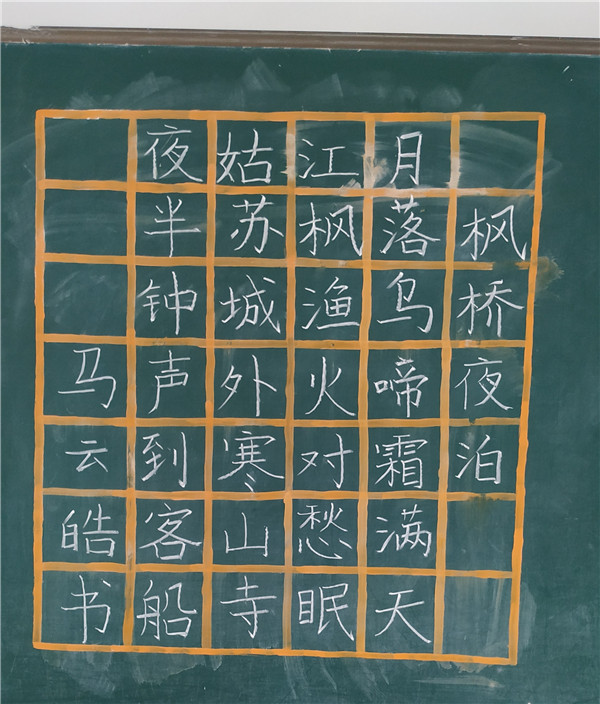 枫桥夜泊
月落乌啼霜满天
江枫渔火对愁眠
姑苏城外寒山寺
夜半钟声到客船
马云皓书